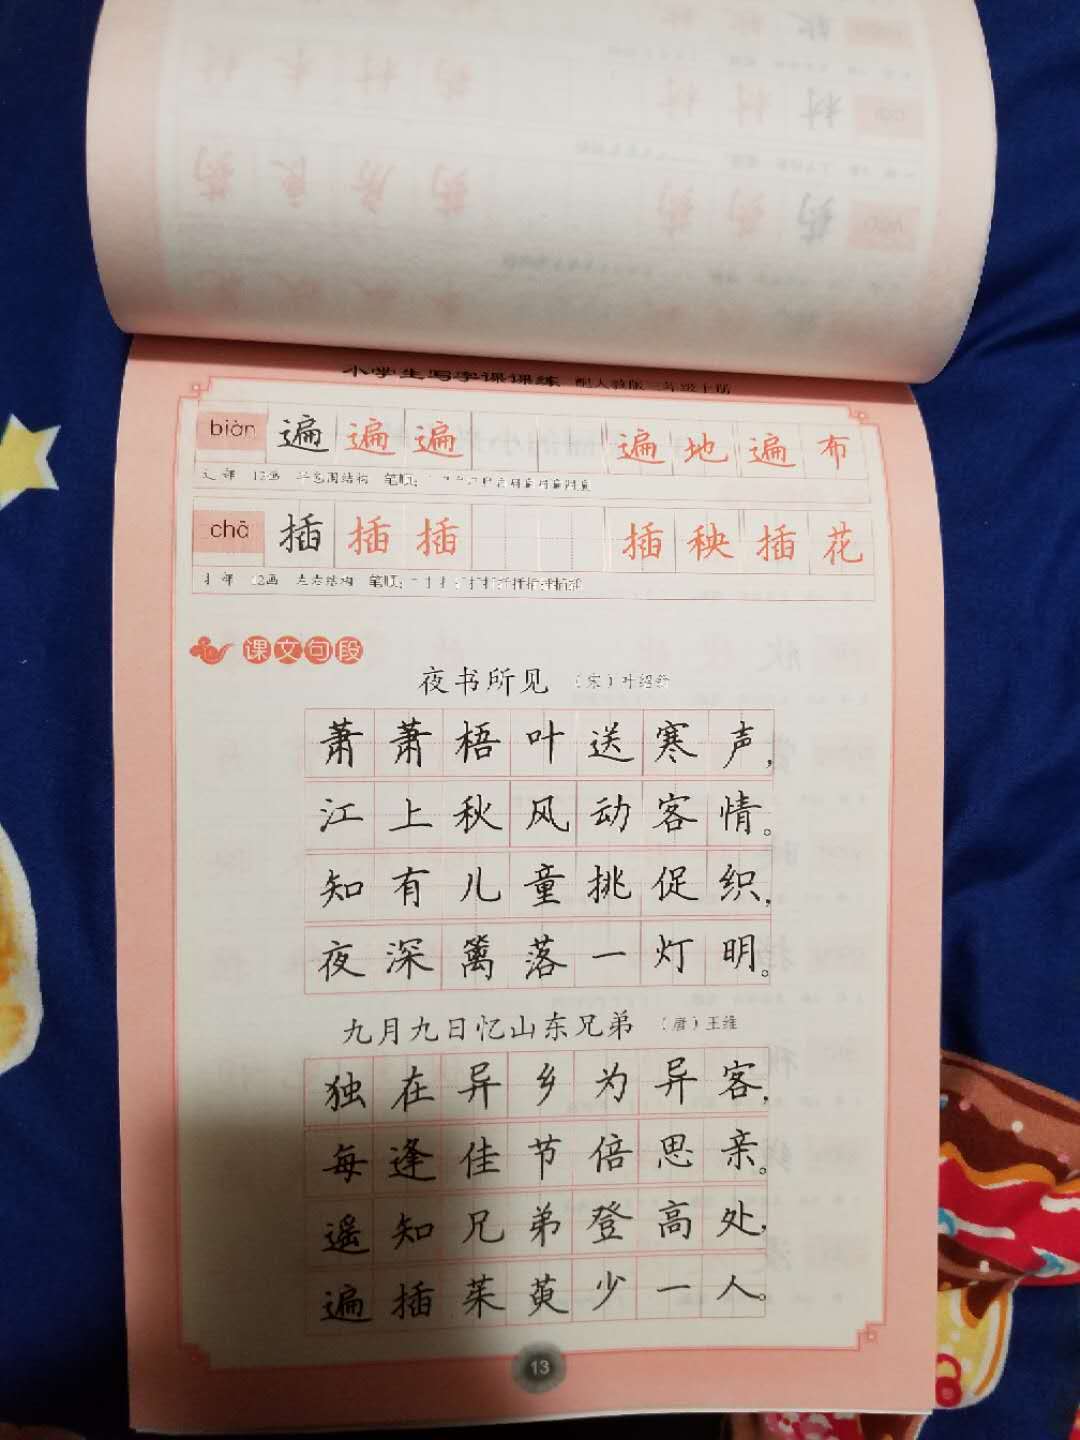 小学生写字课课练 配人教版三年级上册
biàn 遍 遍 遍 遍 地 遍 布
辶部 12画 半包围结构 笔顺:
chā 插 插 插 插 秧 插 花
扌部 12画 左右结构 笔顺:
课文句段
夜书所见 (宋)叶绍翁
萧萧梧叶送寒声,
江上秋风动客情。
知有儿童挑促织,
夜深篱落一灯明。
九月九日忆山东兄弟 (唐)王维
独在异乡为异客,
每逢佳节倍思亲。
遥知兄弟登高处,
遍插茱萸少一人。
13